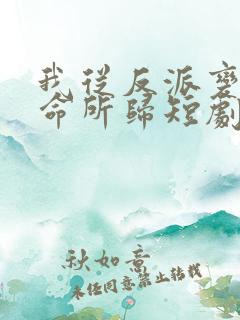 我從反派變
命所歸短劇
秋如意
未经同意禁止转载